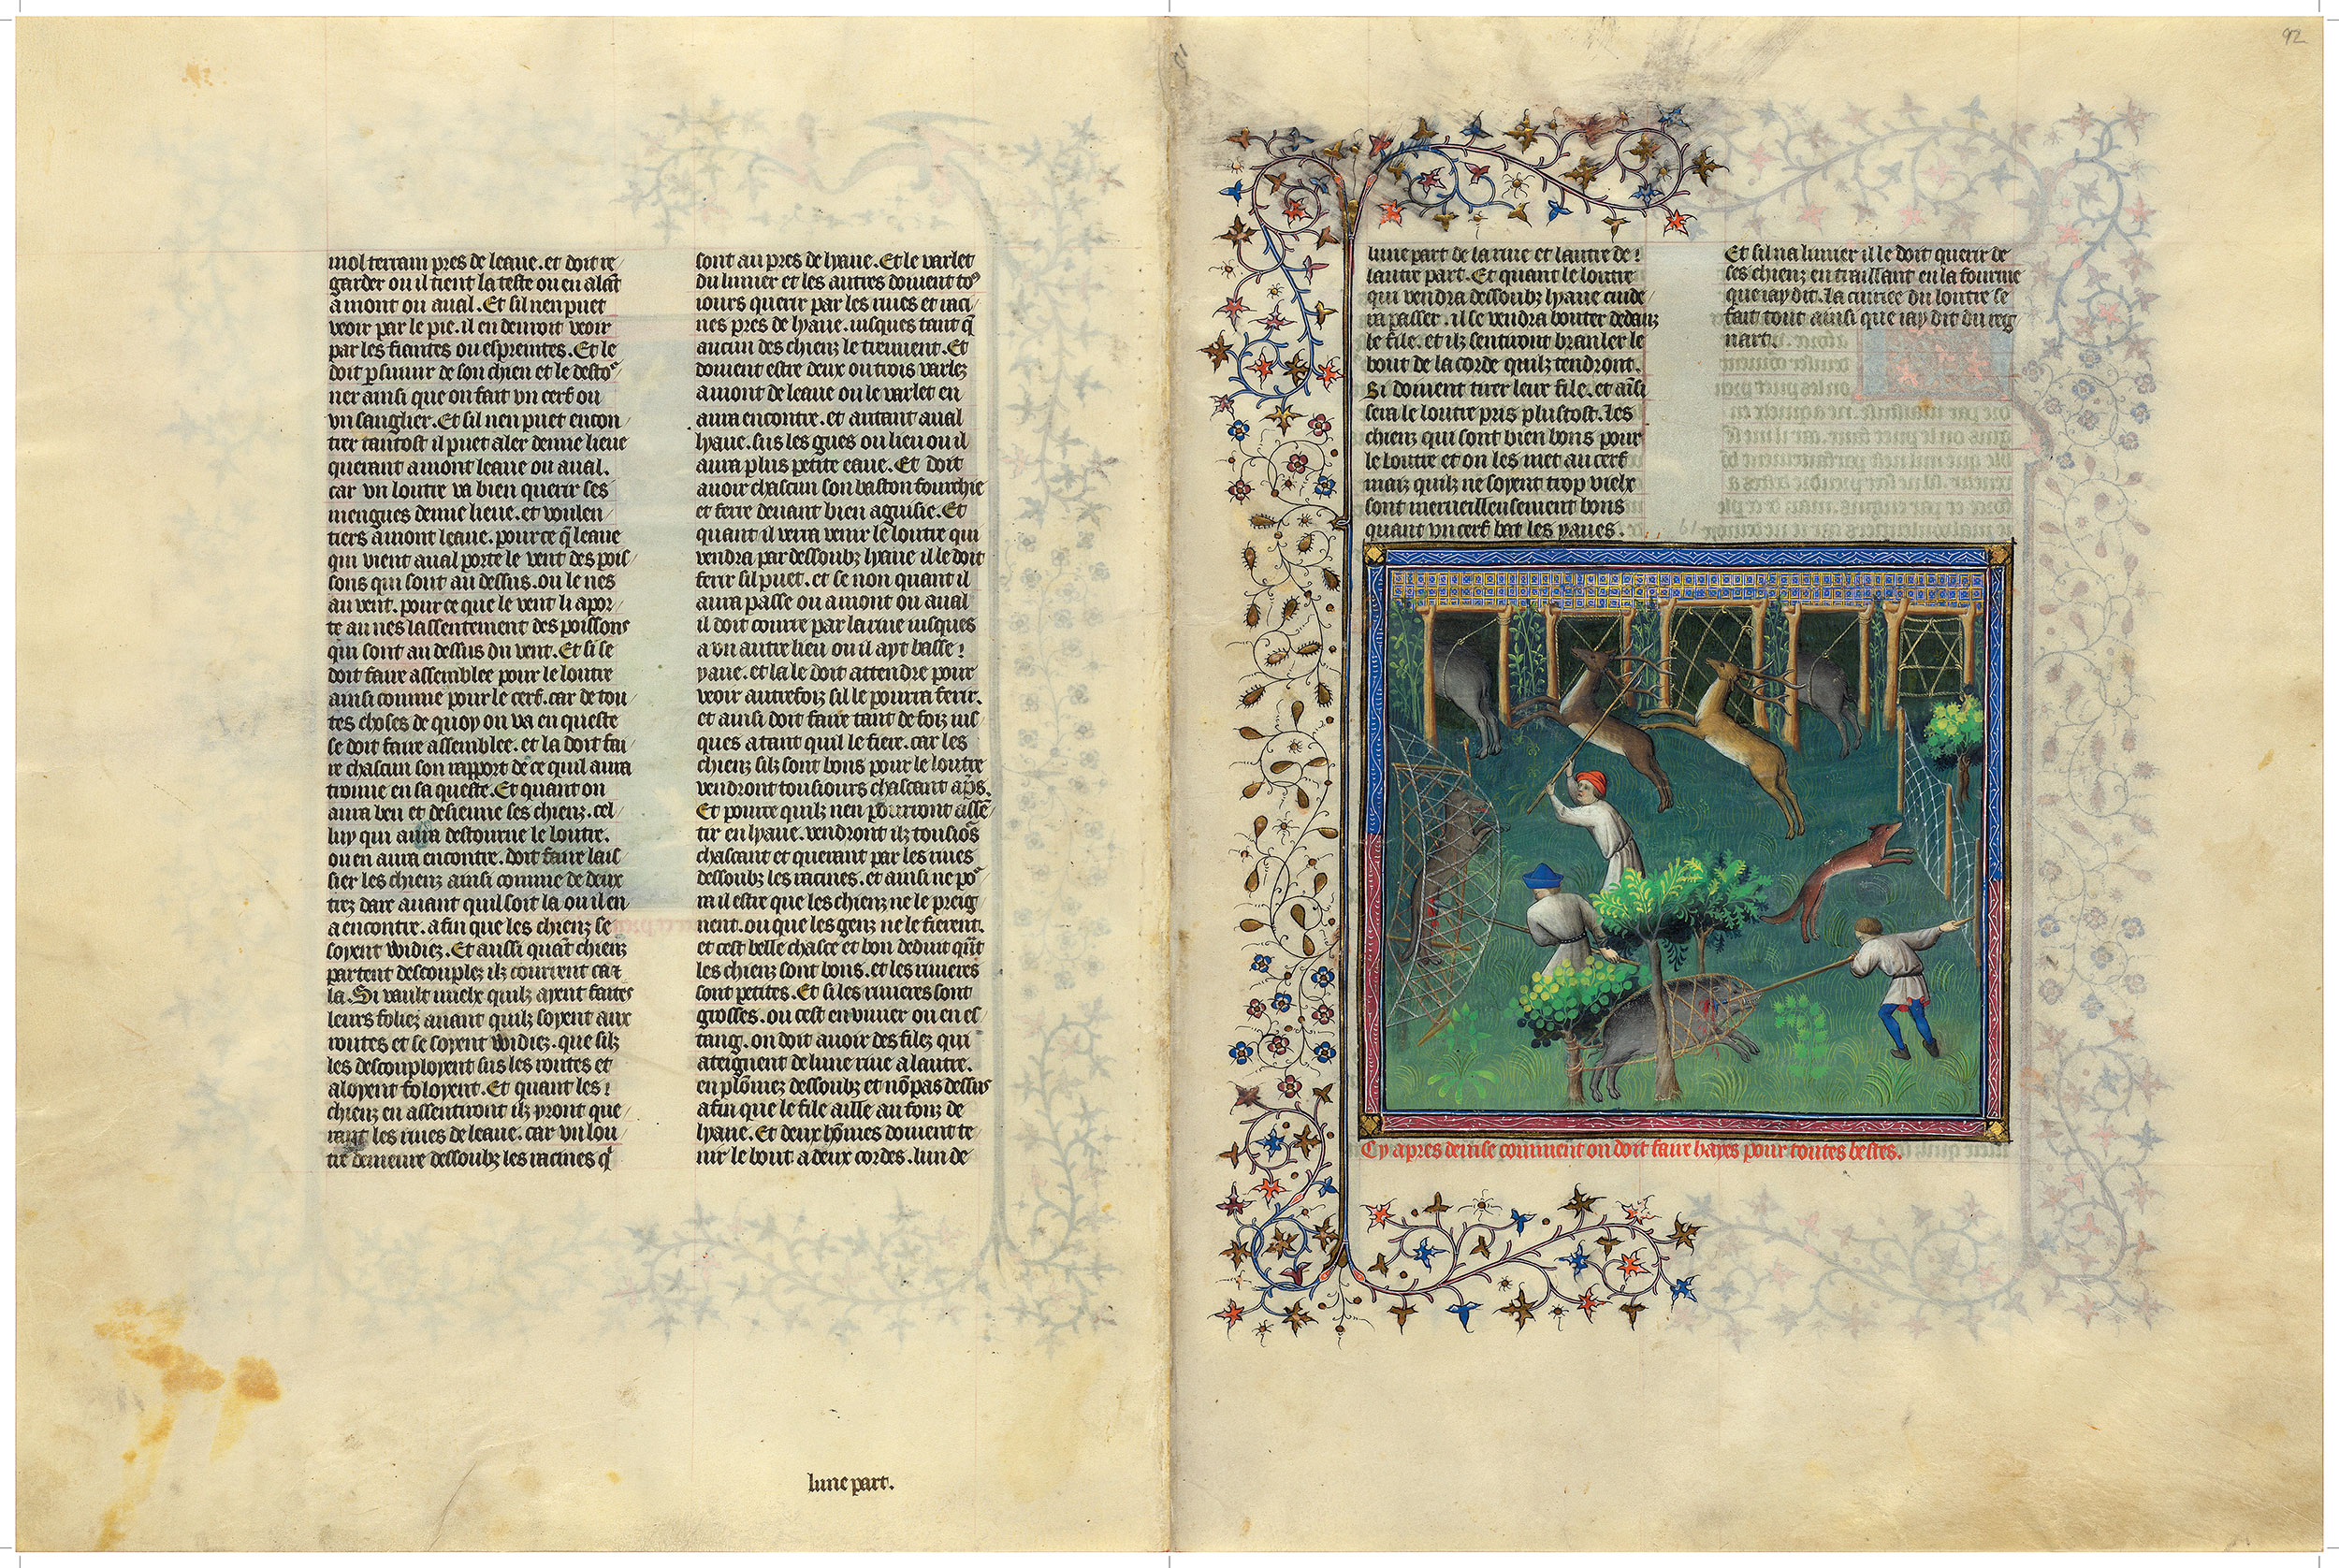 mol terrain pres de leaue. et doit re
garder ou il tient la teste ou en alāt
amont ou aual. Et sil nen puet
veoir par le pie. il en deuroit veoir
par les fientes ou espreintes. Et le
doit psuiuir de son chien et le desto
ner ainsi que on fait vn cerf ou
vn sanglier. Et sil nen puet encon
trer tantost il puet aler demie lieue
querant amont leaue ou aual.
car vn loutre va bien querir ses
mengues demie lieue. et voulen
tiers amont leaue. pource q̄ leaue
qui vient aual porte le vent des pois
sons qui sont au dessus. ou le nes
au vent. pour ce que le vent li apor
te au nes lassentement des poissons
qui sont au dessus du vent. Et si se
doit faire assemblee pour le loutre
ainsi comme pour le cerf. car de tou
tes choses de quoy on va en queste
se doit faire assemblee. et la doit fai
re chascun son rapport de ce quil aura
trouue en sa queste. Et quant on
aura beu et desieune ses chienz. cel
luy qui aura destourne le loutre.
ou en aura encontre. doit faire lais
sier les chienz ainsi comme de deux
trez darc auant quil soit la ou il en
a encontre. afin que les chienz se
soyent widiez. Et aussi quāt chienz
partent descouplez ilz courrent ca et
la. Si vault mielx quilz ayent faites
leurs foliez auant quilz soyent aux
routes et se soyent widiez. que silz
les descouployent sus les routes et
aloyent foloyent. Et quant les
chienz en assentiront ilz yront que
rant les riues de leaue. car vn lou
tre demeure dessoubz les racines q
sont au pres de lyaue. Et le varlet
du limier et les autres doiuent to9
iours querir par les riues et raci
nes pres de lyaue. iusques tant q̄
aucun des chienz le treuuent. Et
doiuent estre deux ou trois varlez
amont de leaue ou le varlet en
aura encontre. et autant aual
lyaue. sus les gues ou lieu ou il
aura plus petite eaue. Et doit
auoir chascun son baston fourchie
et ferre deuant bien aguisie. Et
quant il verra venir le loutre qui
vendra par dessoubz lyaue il le doit
ferir sil puet. et se non quant il
aura passe ou amont ou aual
il doit courre par la riue iusques
a vn autre lieu ou il ayt basse
yaue. et la le doit attendre pour
veoir autrefoiz sil le pourra ferir.
et ainsi doit faire tant de foiz ius
ques atant quil le fiere. car les
chienz silz sont bons pour le loutre
vendront tousiours chassant ap̄s.
Et pource quilz nen pourront assē
tir en lyaue. vendront ilz tousio9s
chassant et querant par les riues
dessoubz les racines. et ainsi ne po
ra il estre que les chienz ne le preig
nent. ou que les genz ne le fierent.
et cest belle chasce et bon deduit qūt
les chienz sont bons. et les riuieres
sont petites. Et si les riuieres sont
grosses. ou cest en viuier ou en es
tang. on doit auoir des filez qui
ateignent de lune riue a lautre.
en plōmez dessoubz et nō pas dessus
afin que le file aille au fonz de
lyaue. Et deux hōmes doiuent te
nir le bout a deux cordes. lun de
lune part.
92
lune part de la riue et lautre de
lautre part. Et quant le loutre
qui vendra dessoubz lyaue cuide
ra passer. il se vendra bouter dedanz
le file. et ilz sentiront branler le
bout de la corde quilz tendront.
Si doiuent tirer leur file. et aīsi
sera le loutre pris plustost. Les
chienz qui sont bien bons pour
le loutre et on les met au cerf
maiz quilz ne soyent trop vielx
sont merueilleusement bons
quant vn cerf bat les yaues.
Et sil na limier il le doit querir de
ses chienz en traillant en la fourme
que iay dit. La cuiriee du loutre se
fait tout ainsi que iay dit du reg
nart.
Cy apres deuise comment on doit faire hayes pour toutes bestes.